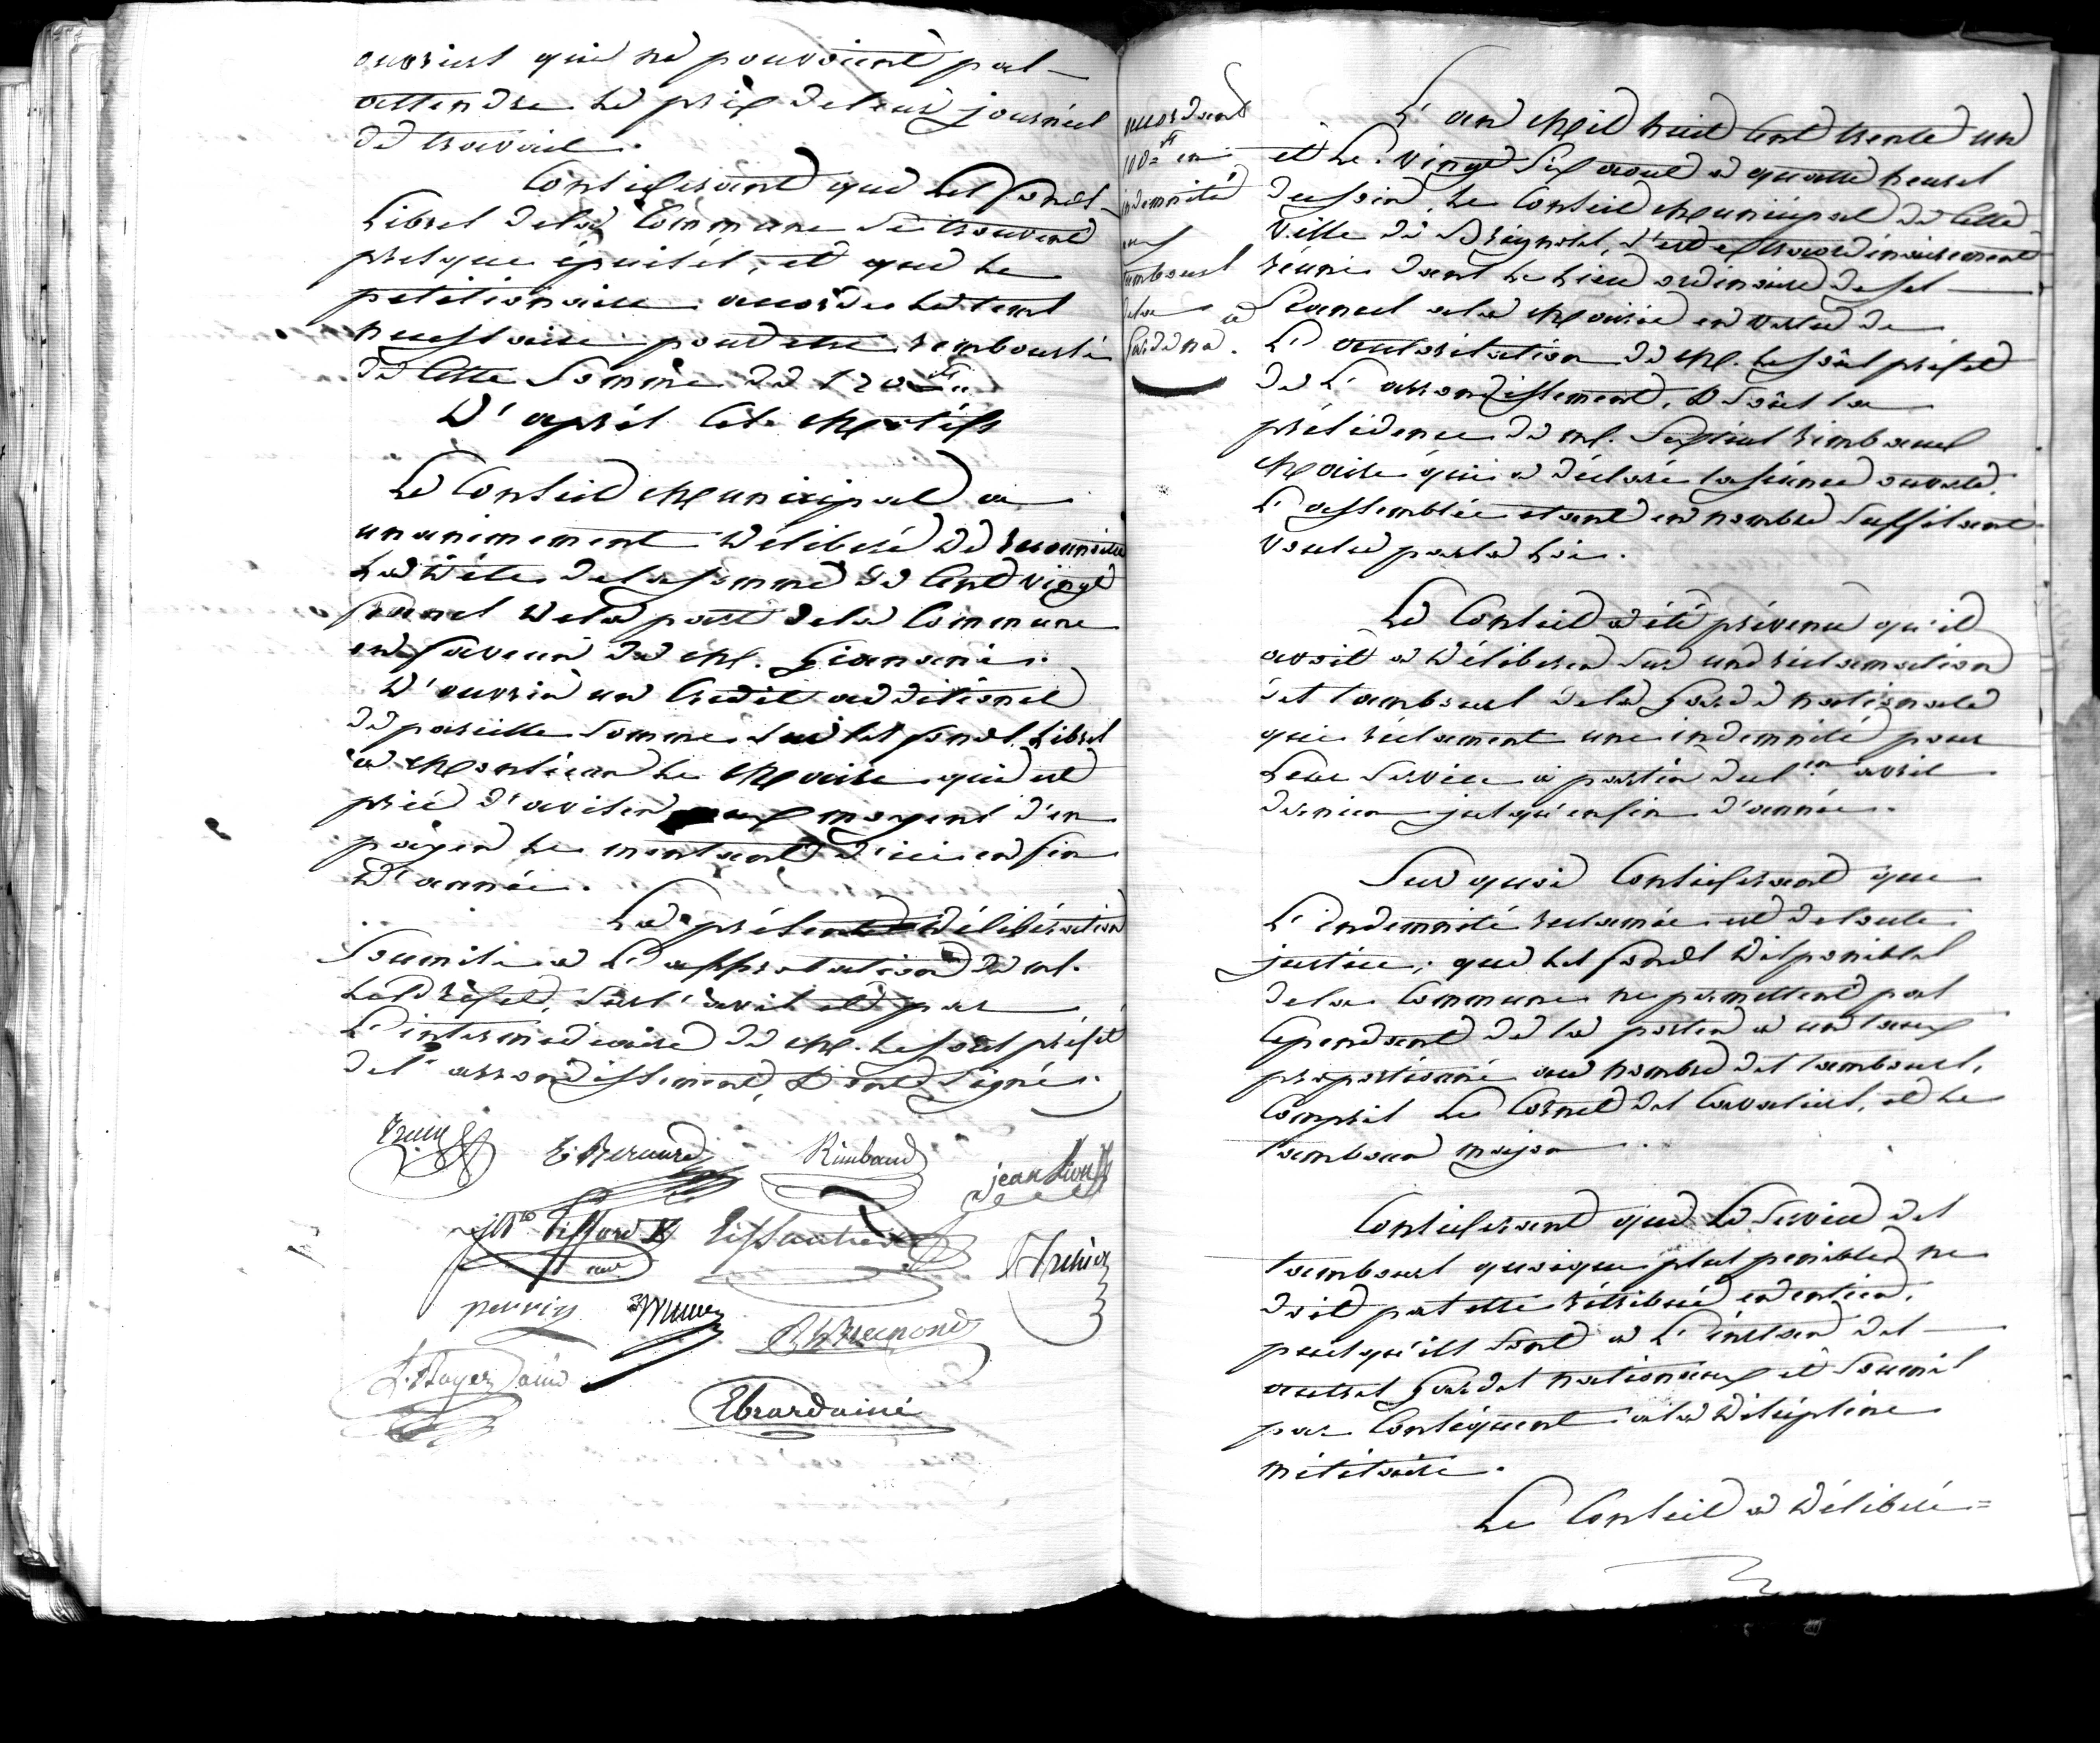 ouvriers qui ne pouvoient pas
attendre le prix de leurs journées
de travail.
Considerant que les fonds
Libres de la Commune se trouvent
presque épuisés, et que le
petitionnaire accorde le tems
necessaire pour etre remboursé
de Cette Somme de 120 f.
D'après Ces Motifs
Le Conseil Municipal a
unanimement Déliberé De reconnoitre
La Dette de la somme de Cent vingt
francs De la part de la Commune
en faveur de M. Gianani.
D'ouvrir un Credit additionel
de pareille Somme Sur les fonds Libres
à Monsieur Le Maire qui est
prié d'aviser aux moyens d'en
payer Le montant d'ici en fin
D'année.
La présente Déliberation
Soumise a L'approbation de M.
Le Préfet, Sur l'avis et par
L'intermediaire de M. Le Sous préfet
de l'arrondissement, & ont Signé.
E. Bernard
Rimbaud
jean
perrin
L. Boyer Jainé
Ebrard ainé
accordant
100 f en
indemnité
aux
tambours
de la
Garde na.
L'an Mil huit Cent trente un
et Le vingt Six aout a quatre heures
du soir, Le Conseil Municipal de Cette
Ville de Brignoles, s'est extraordinairement
reuni dans Le Lieu ordinaire de ses
Seances a la Mairie en vertu de
L'autorisation de M. Le Sous préfet
de L'arrondissement, & Sous la
présidence de M. rimbaud
Maire qui a déclaré la séance ouverte,
L'assemblée etant en nombre Suffisant
Voulu par la Loi.
Le Conseil a été prévenu qu'il
avoit a Déliberer Sur une réclamation
des tambours de la garde nationale
qui réclament une indemnité pour
Leur Service à partir du 1er avril
dernier jusqu'en fin d'année.
Sur quoi Considerant que
L'indemnité reclamée est de toute
justice; que Les fonds Disponibles
de la Commune ne permettent pas
Cependant de la porter a un taux
proportionné au nombre des tambours,
Compris Le Cornet des Cavaliers, et Le
tambour major.
Considerant que Le Service des
tambours quoique plus penible ne
doit pas etre rétribué en entier,
puisqu'ils Sont a L'instar des
autres gardes nationaux et Soumis
par Conséquent a la Discipline
militaire.
Le Conseil a Déliberé =